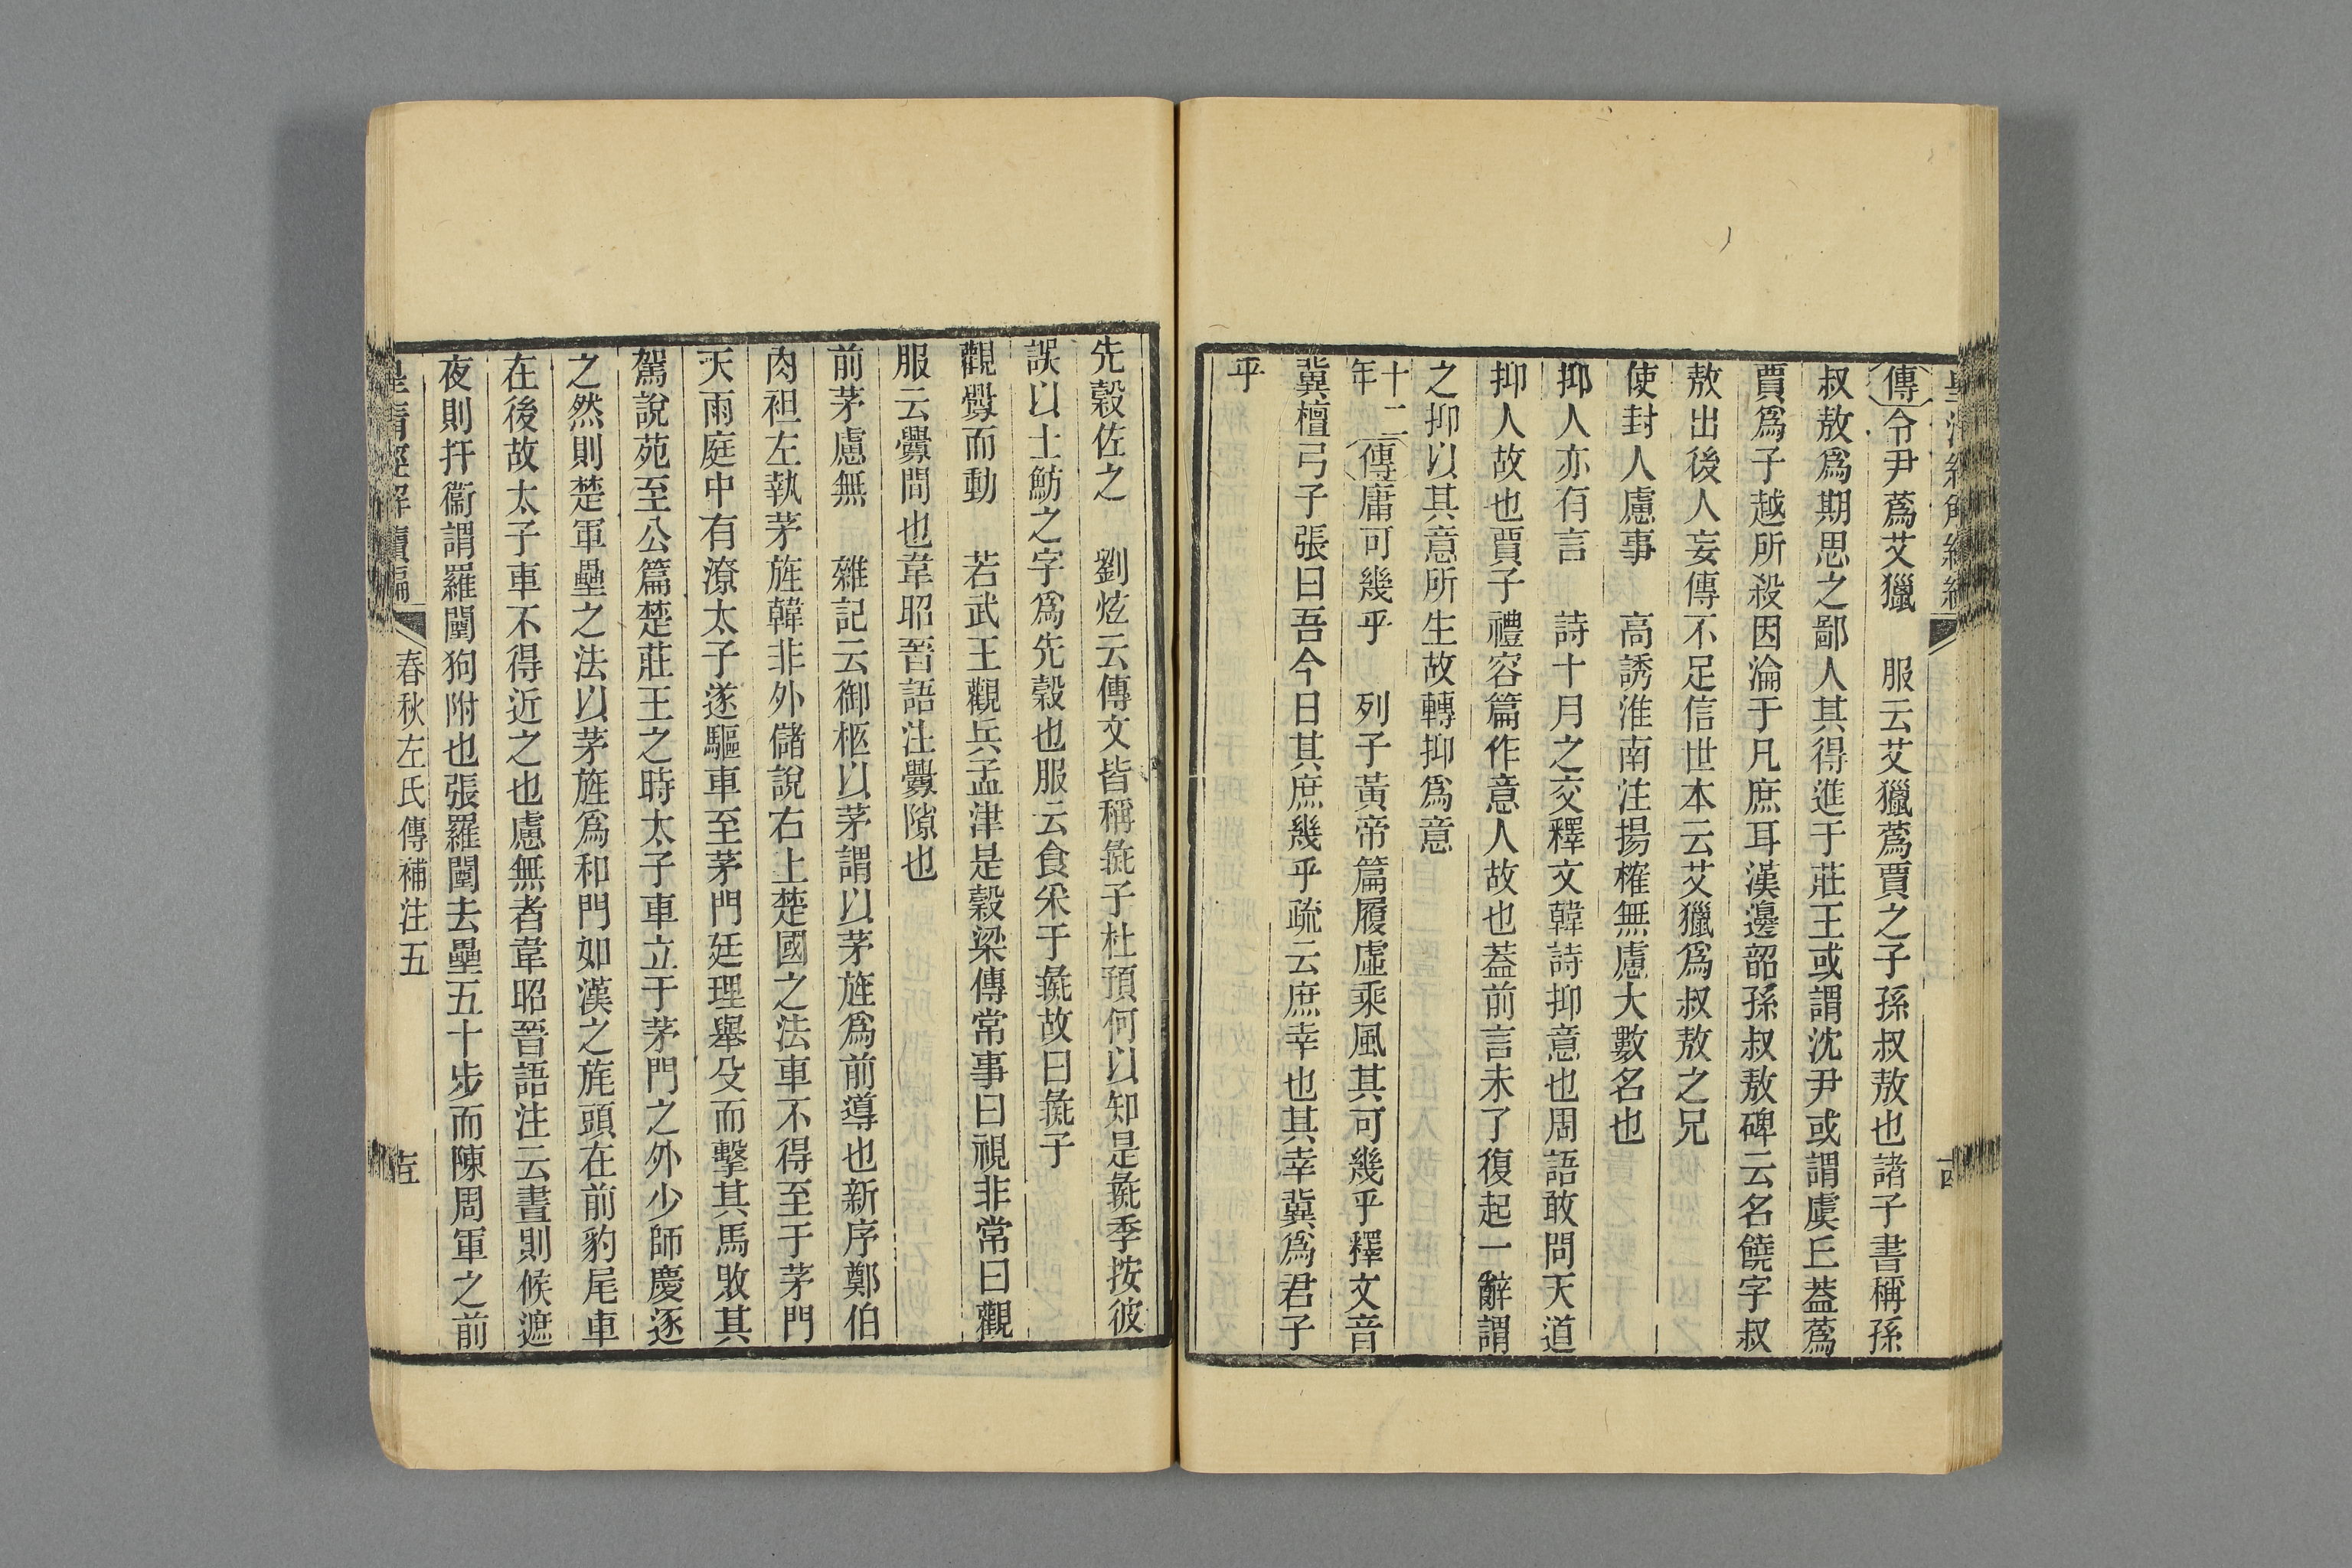 傳令尹蔿艾獵　服云艾獵蔿賈之子孫叔敖也諸子書稱孫
叔敖爲期思之鄙人其得進于莊王或謂沈尹或謂虞丘蓋蔿
賈爲子越所殺因淪于凡庶耳漢邊韶孫叔敖碑云名饒字叔
敖出後人妄傳不足信世本云艾獵爲叔敖之兄
使封人慮事　高誘淮南注揚榷無慮大數名也
抑人亦有言　詩十月之交釋文韓詩抑意也周語敢問天道
抑人故也賈子禮容篇作意人故也蓋前言未了復起一辭謂
之抑以其意所生故轉抑爲意
十二年傳庸可幾乎　列子黃帝篇履虛乘風其可幾乎釋文音
冀檀弓子張曰吾今日其庶幾乎疏云庶幸也其幸冀爲君子
乎
先縠佐之　劉炫云傳文皆稱彘子杜預何以知是彘季按彼
誤以士魴之字爲先縠也服云食采于彘故曰彘子
觀釁而動　若武王觀兵孟津是穀梁傳常事曰視非常曰觀
服云釁間也韋昭晉語注釁隙也
前茅慮無　雜記云御柩以茅謂以茅旌爲前導也新序鄭伯
肉袒左執茅旌韓非外儲說右上楚國之法車不得至于茅門
天雨庭中有潦太子遂驅車至茅門廷理舉殳而擊其馬敗其
駕說苑至公篇楚莊王之時太子車立于茅門之外少師慶逐
之然則楚軍壘之法以茅旌爲和門如漢之旄頭在前豹尾車
在後故太子車不得近之也慮無者韋昭晉語注云晝則候遮
夜則扞衞謂羅闉狗附也張羅闉去壘五十步而陳周軍之前
皇清經解續編　春秋左氏傳補注五